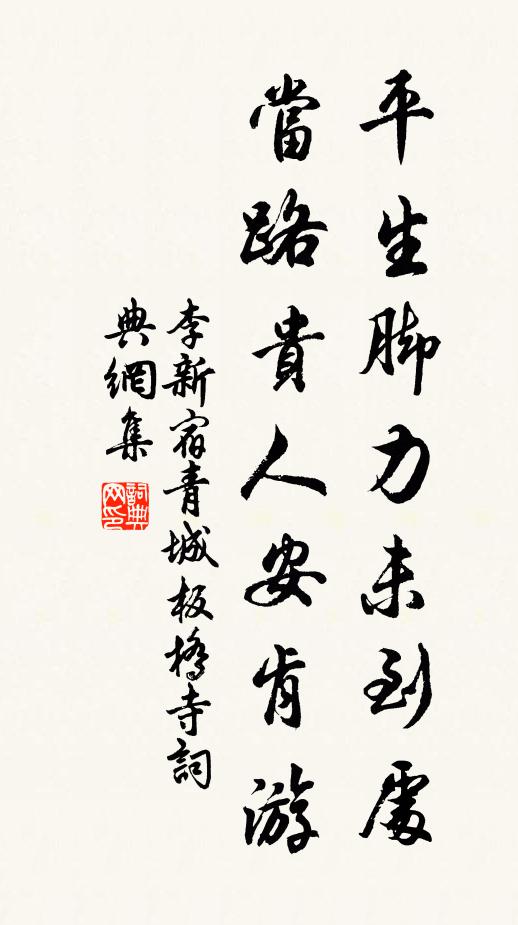 平生脚力未到處
當路貴人安肯游
李新宿青城板橋寺詞
典網集
詞典
网印